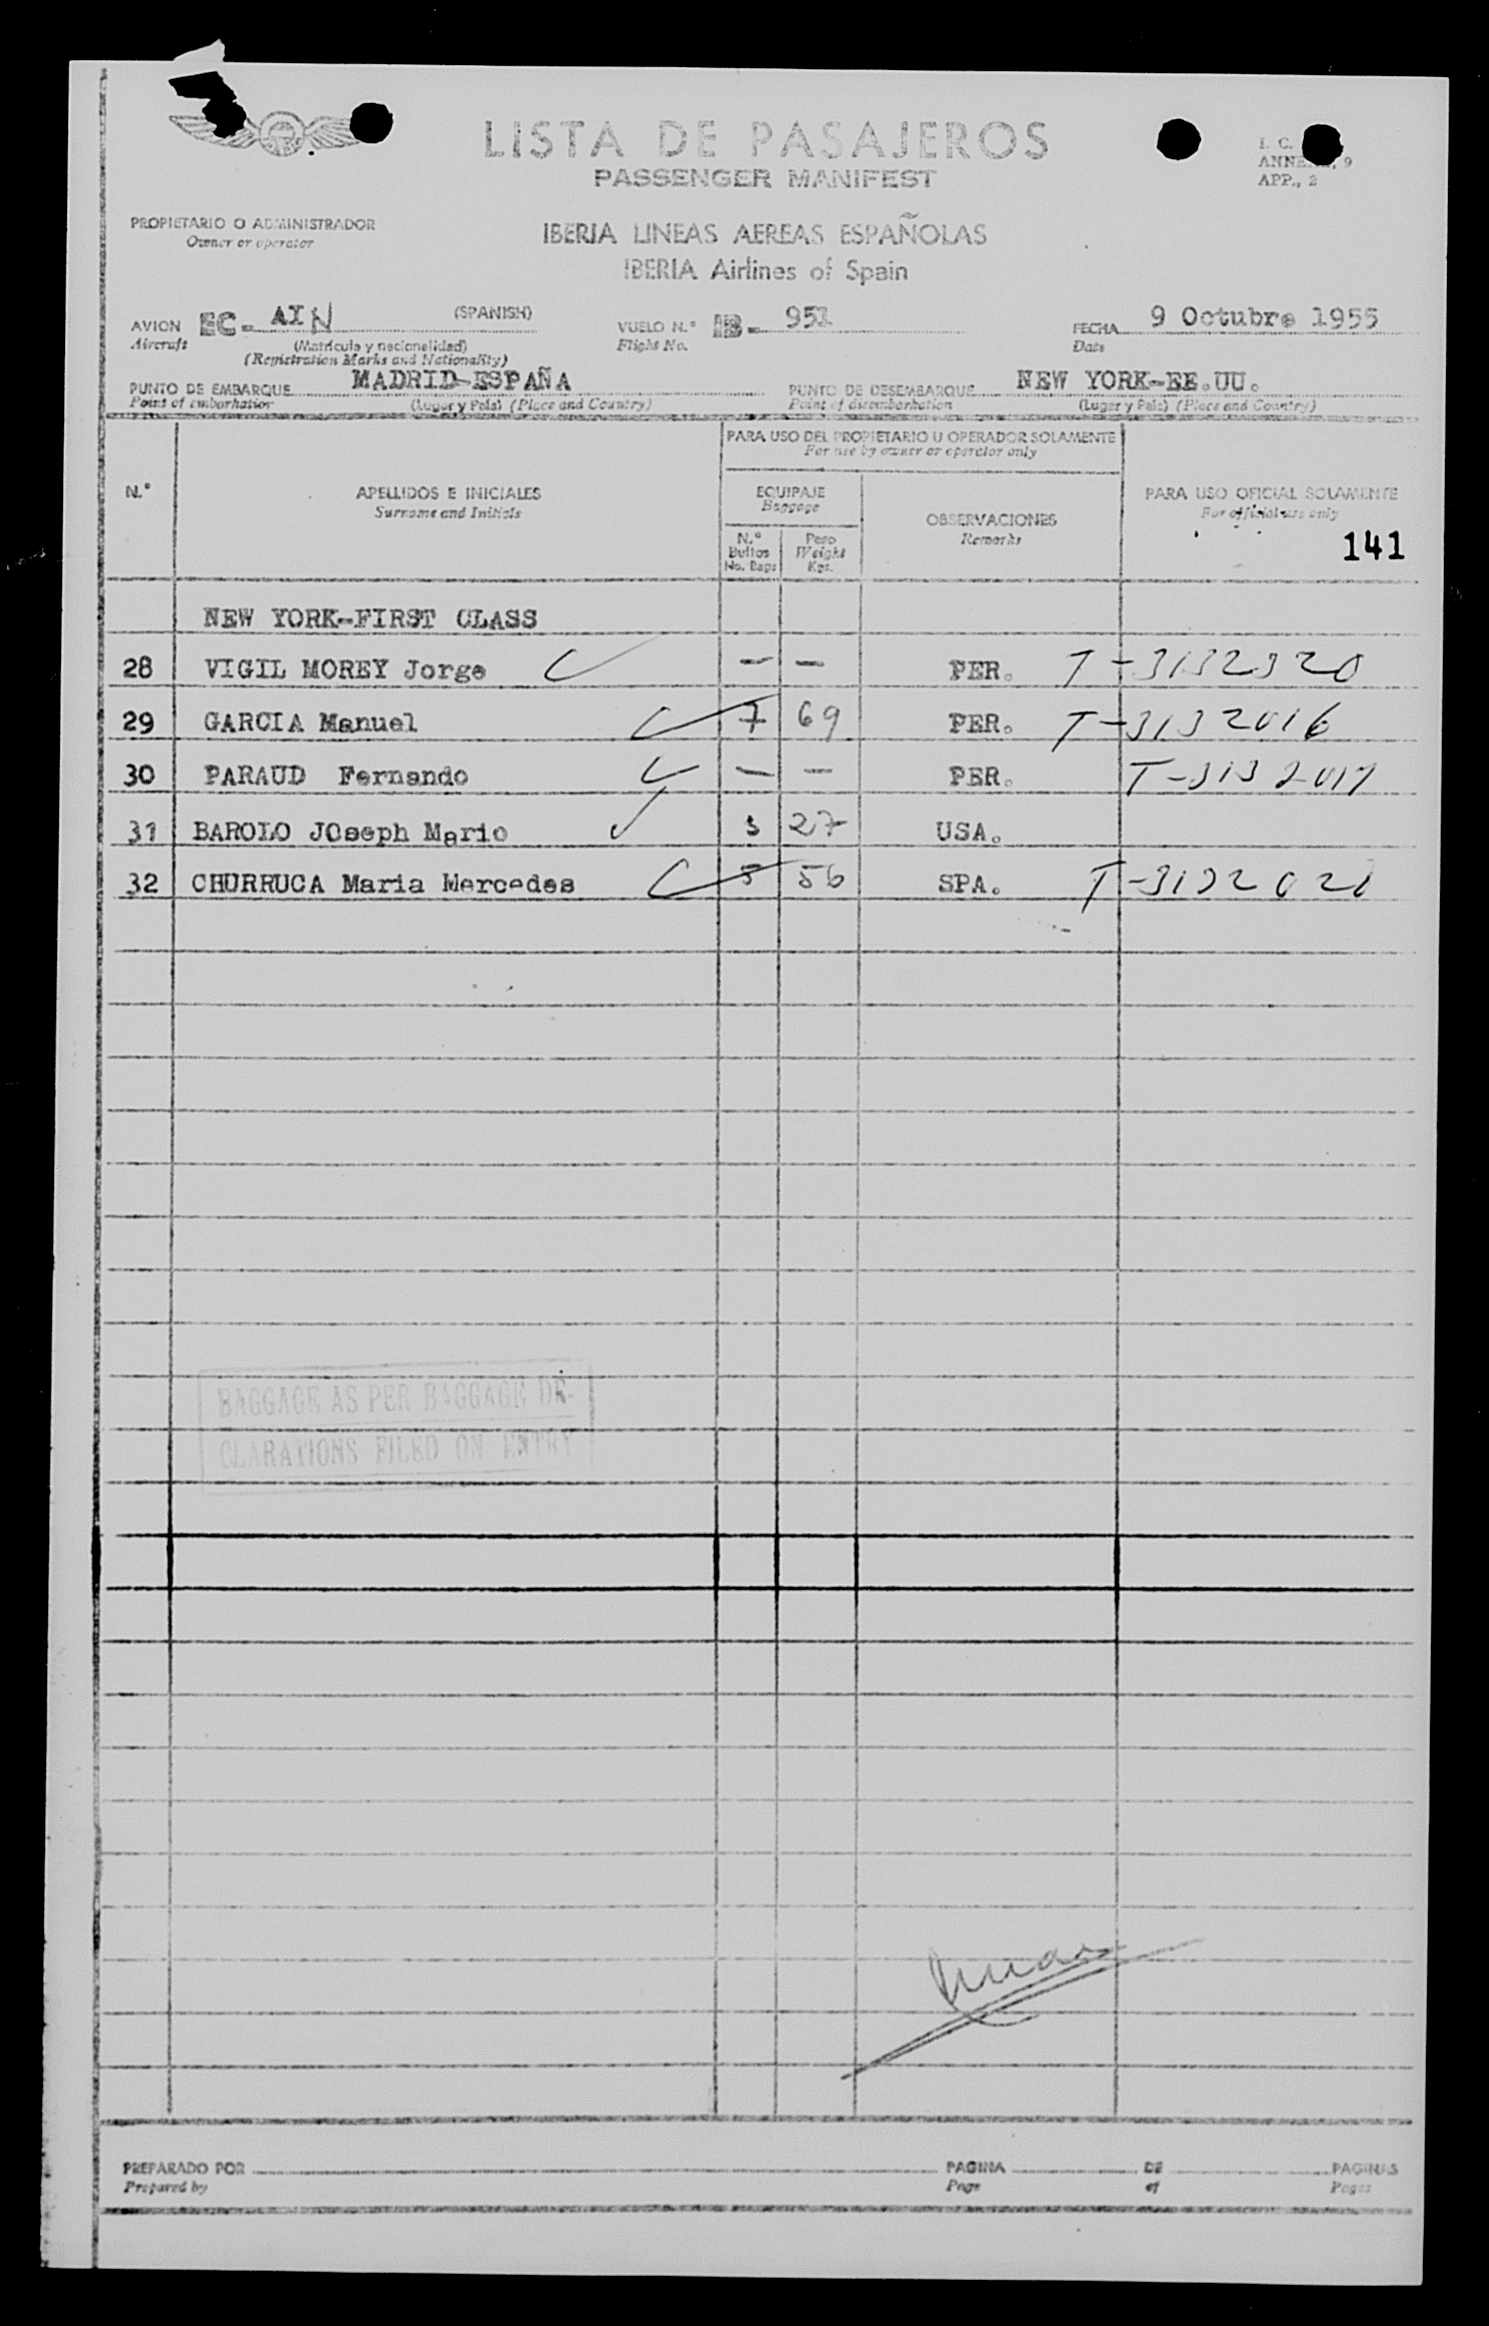 LISTA DE PASAJEROS
PASSENGER MANIFEST
I. C.
ANNE , 9
APP., 2
PROPIETARIO O ADMINISTRADOR
Owner or operator
IBERIA LINEAS AEREAS ESPAÑOLAS
IBERIA Airlines of Spain
AVION EC- AIN (SPANISH) VUELO N.° IB- 951 FECHA 9 Octubre 1955
Aircraft (Matrícula y nacionalidad) Flight No. Date
(Registration Marks and Nationality)
PUNTO DE EMBARQUE MADRID-ESPAÑA PUNTO DE DESEMBARQUE NEW YORK-EE.UU.
Point of embarkation (Lugar y País) (Place and Country) Point of disembarkation (Lugar y País) (Place and Country)
PARA USO DEL PROPIETARIO U OPERADOR SOLAMENTE
For use by owner or operator only
N.° APELLIDOS E INICIALES EQUIPAJE PARA USO OFICIAL SOLAMENTE
Surname and Initials Baggage For official use only
OBSERVACIONES
Remarks
N.° Bultos Peso
No. Bags Weight Kgs.
141
NEW YORK-FIRST CLASS
28 VIGIL MOREY Jorge — — PER. T-3132320
29 GARCIA Manuel 7 69 PER. T-3132016
30 PARAUD Fernando — — PER. T-3132017
31 BAROLO JOseph Mario 3 27 USA.
32 CHURRUCA Maria Mercedes 5 56 SPA. T-3132020
BAGGAGE AS PER BAGGAGE DE-
CLARATIONS FILED ON ENTRY
PREPARADO POR PAGINA DE PAGINAS
Prepared by Page of Pages